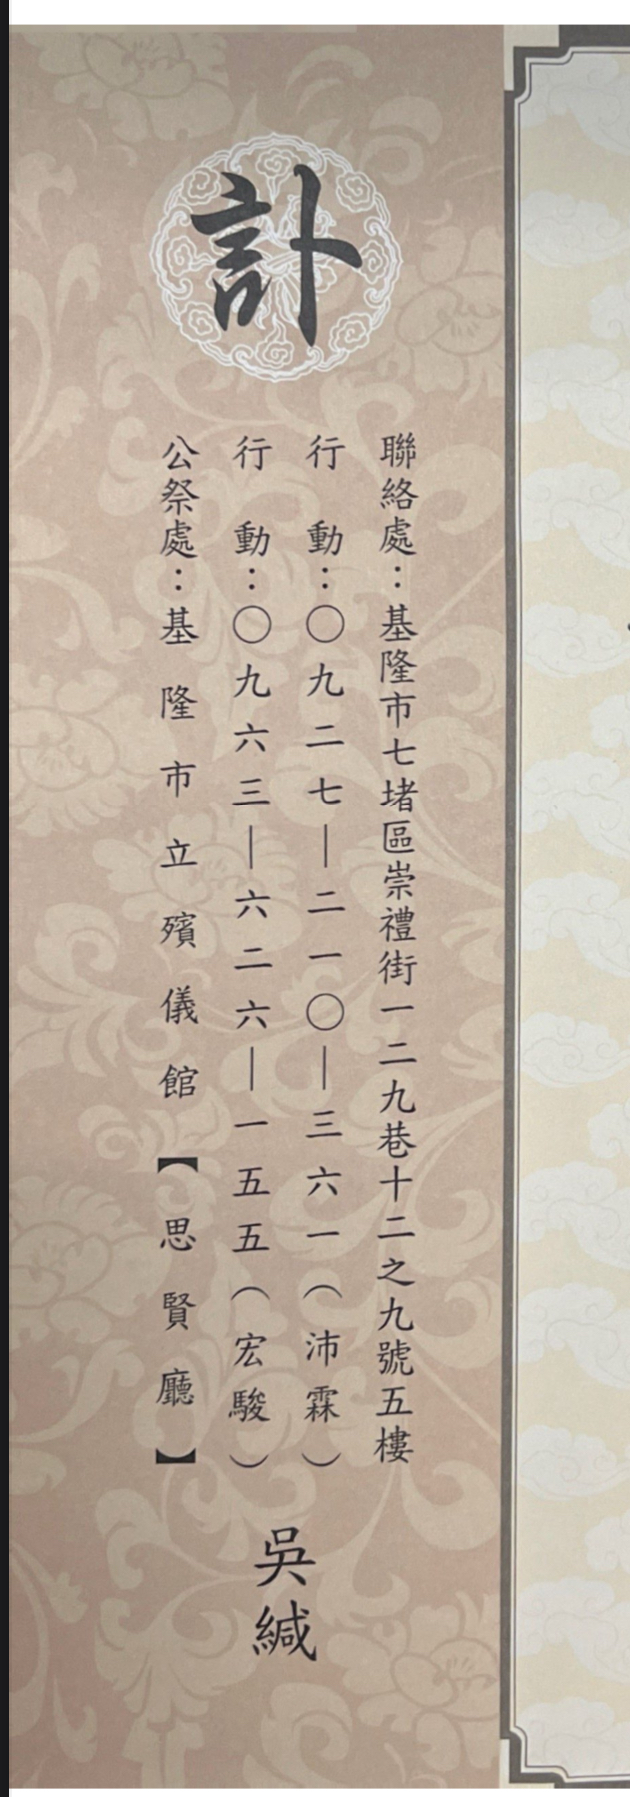 訃
聯絡處：基隆市七堵區崇禮街一二九巷十二之九號五樓
行動：〇九二七—二一〇—三六一（沛霖）
行動：〇九六三—六二六—一五五（宏駿）
公祭處：基隆市立殯儀館【思賢廳】
吳緘